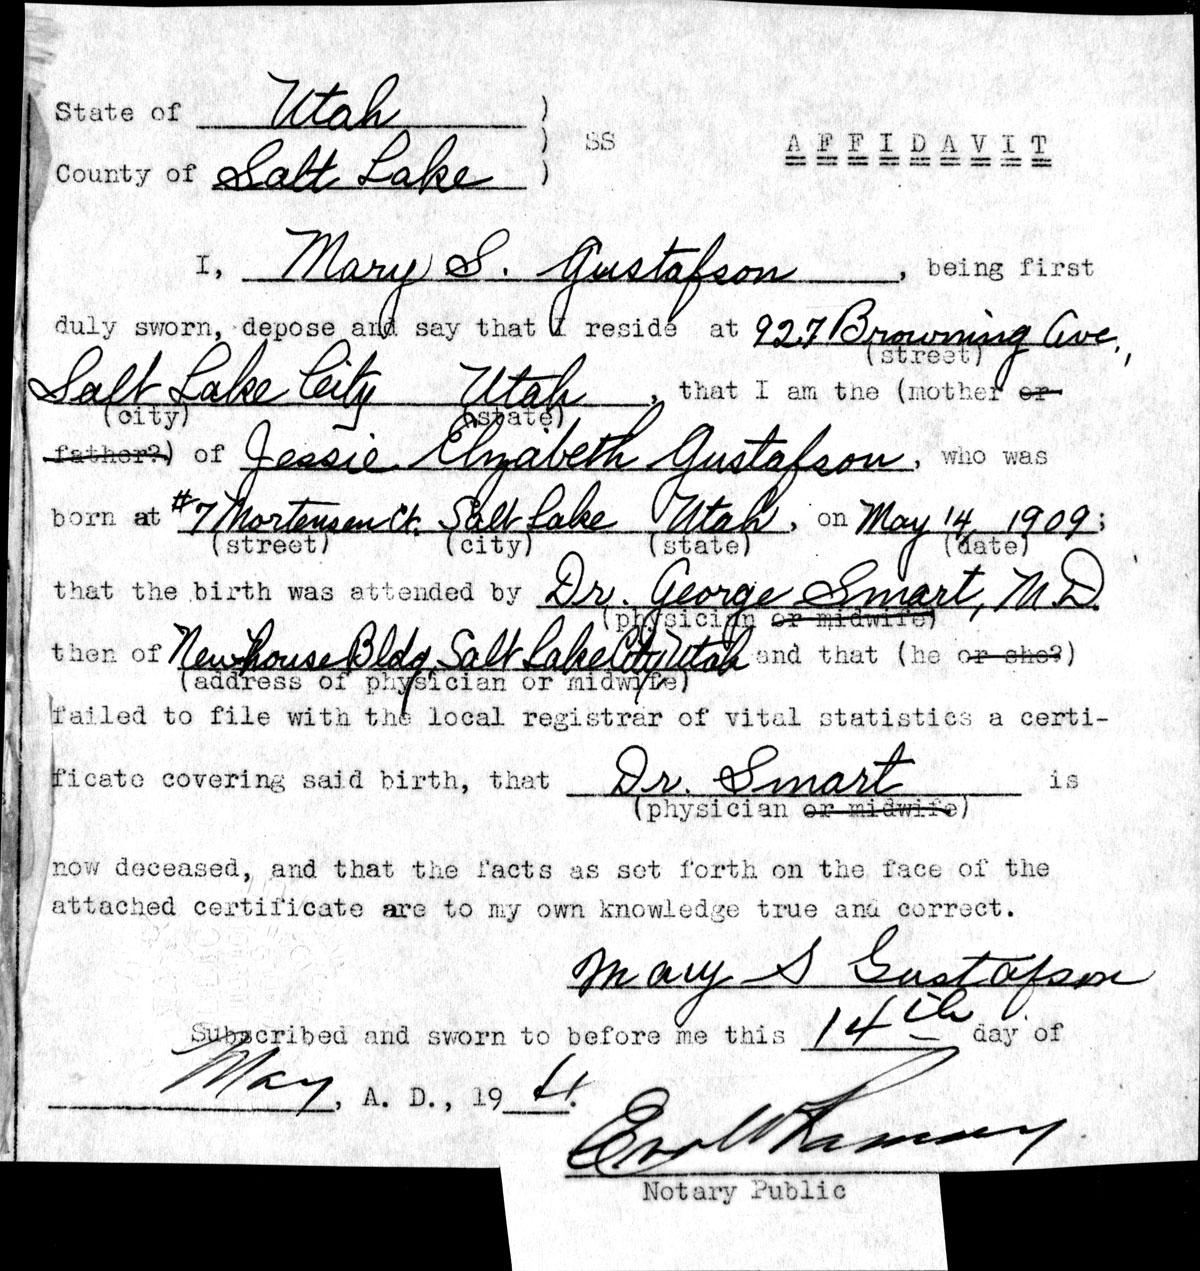 State of Utah )
) SS AFFIDAVIT
County of Salt Lake )
I, Mary S. Gustafson, being first
duly sworn, depose and say that I reside at 927 Browning Ave.,
(street)
Salt Lake City Utah, that I am the (mother or
(city) (state)
father?) of Jessie Elizabeth Gustafson, who was
born at #7 Mortensen Ct. Salt Lake Utah, on May 14, 1909;
(street) (city) (state) (date)
that the birth was attended by Dr. George Smart, M.D.
(physician or midwife)
then of Newhouse Bldg, Salt Lake City Utah and that (he or she?)
(address of physician or midwife)
failed to file with the local registrar of vital statistics a certi-
ficate covering said birth, that Dr. Smart is
(physician or midwife)
now deceased, and that the facts as set forth on the face of the
attached certificate are to my own knowledge true and correct.
Mary S Gustafson
Subscribed and sworn to before me this 14th day of
May, A. D., 19
Notary Public